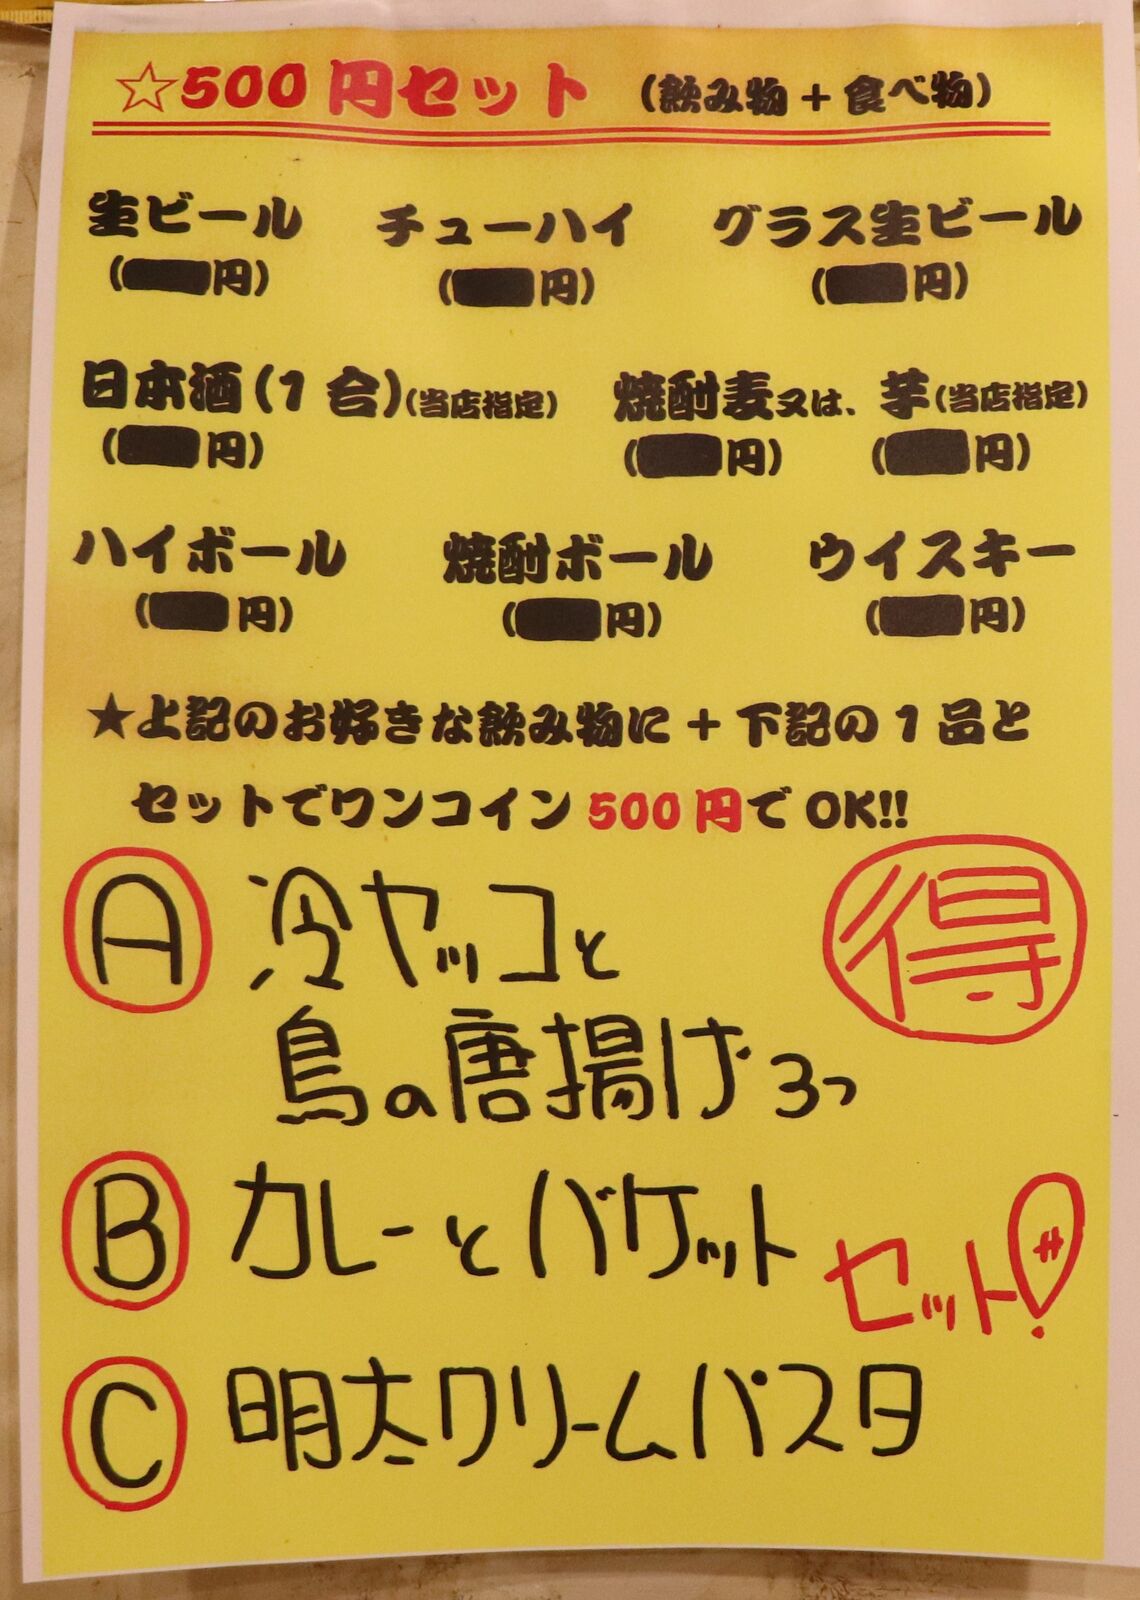 ☆500円セット (飲み物+食べ物)
生ビール チューハイ グラス生ビール
(円) (円) (円)
日本酒(1合)(当店指定) 焼酎麦又は、芋(当店指定)
(円) (円) (円)
ハイボール 焼酎ボール ウイスキー
(円) (円) (円)
★上記のお好きな飲み物に+下記の1品と
セットでワンコイン500円でOK!!
A 冷ヤッコと
得
鳥の唐揚げ3つ
B カレーとバケット
セット!
C 明太クリームパスタ